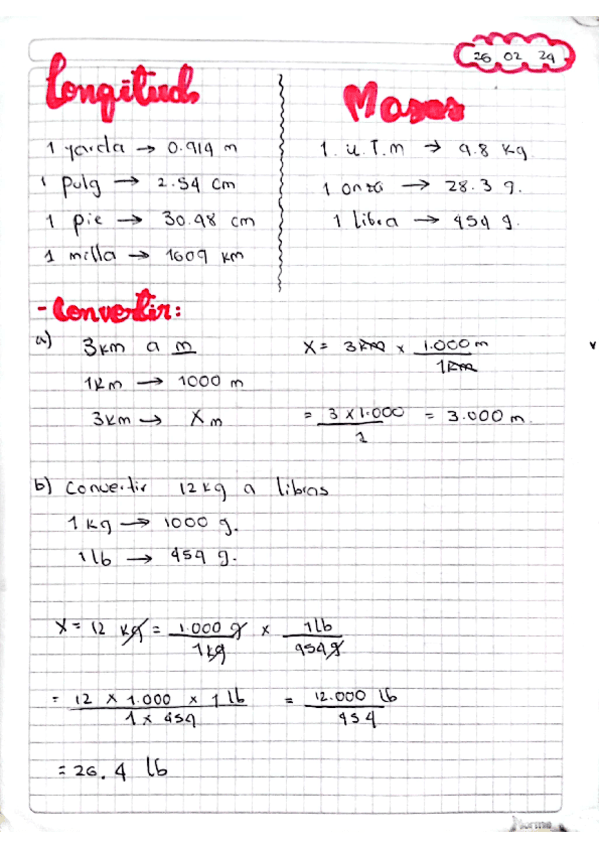 26 02 24
Longitud
1 yarda → 0.914 m
1 pulg → 2.54 cm
1 pie → 30.48 cm
1 milla → 1609 km
Masas
1. u.T.m → 9.8 kg
1 onza → 28.3 g.
1 libra → 454 g.
- Convertir:
a) 3km a m
1km → 1000 m
3km → X m
X = 3km x 1.000 m / 1km
= 3 x 1.000 / 1 = 3.000 m.
b) Convertir 12 kg a libras
1 kg → 1000 g.
1 lb → 454 g.
X = 12 kg = 1.000 g / 1 kg x 1 lb / 454 g
= 12 x 1.000 x 1 lb / 1 x 454 = 12.000 lb / 454
= 26.4 lb
Norma